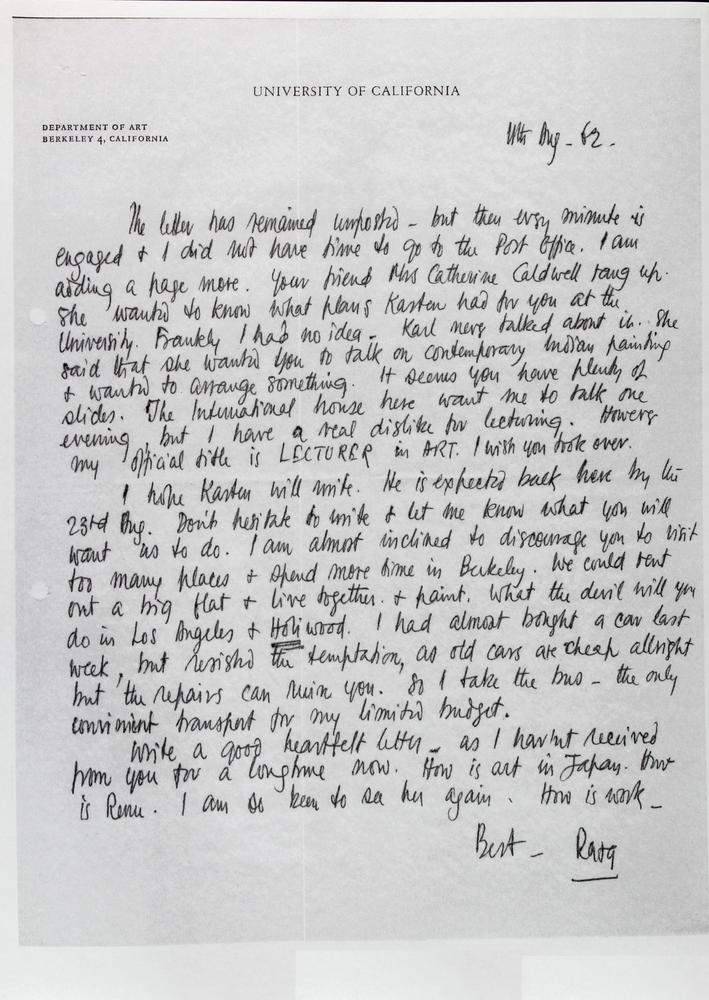 UNIVERSITY OF CALIFORNIA
DEPARTMENT OF ART
BERKELEY 4, CALIFORNIA
11th Aug - 62.
The letter has remained unposted - but then every minute is
engaged & I did not have time to go to the Post Office. I am
adding a page more. Your friend Mrs Catherine Caldwell rang up.
She wanted to know what plans Karsten had for you at the
University. Frankly I had no idea - Karl never talked about it. She
said that she wanted you to talk on contemporary Indian painting
& wanted to arrange something. It seems you have plenty of
slides. The International house here want me to talk one
evening, but I have a real dislike for lecturing. However
my official title is LECTURER in ART. I wish you took over.
I hope Karsten will write. He is expected back here by the
23rd Aug. Don't hesitate to write & let me know what you will
want us to do. I am almost inclined to discourage you to visit
too many places & spend more time in Berkeley. We could rent
out a big flat & live together. & paint. What the devil will you
do in Los Angeles & Holiwood. I had almost bought a car last
week, but resisted the temptation, as old cars are cheap allright
but the repairs can ruin you. So I take the bus - the only
convinient transport for my limited budget.
Write a good heartfelt letter - as I havent received
from you for a longtime now. How is art in Japan. How
is Renu. I am so keen to see her again. How is work -
Best - Raza